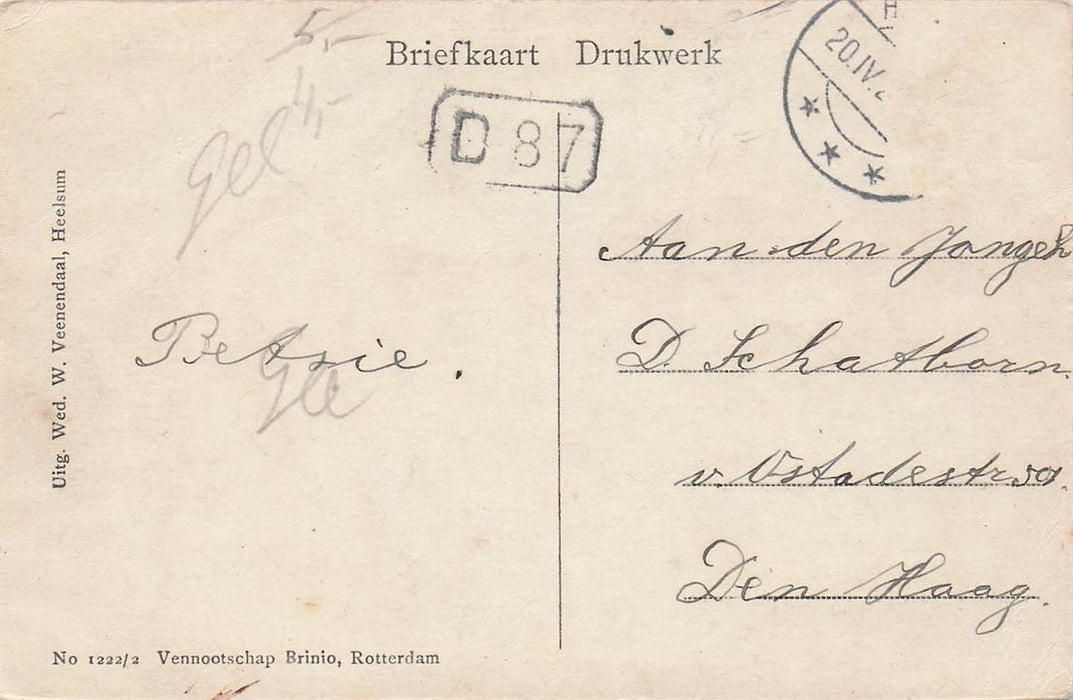 5,-
Briefkaart Drukwerk
20.IV.
4,-
D 87
gel
Uitg. Wed. W. Veenendaal, Heelsum
Aan den Jongeh
Betsie.
D. Schatborn.
v. Ostadestr
Den Haag.
No 1222/2 Vennootschap Brinio, Rotterdam